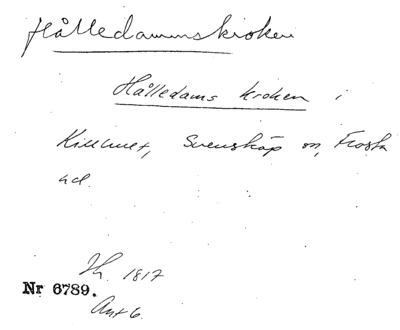 Hålledammskroken
Hålledams kroken i
Svensköp sn, Frosta
hd.
Jh. 1817
Nr 6789.
Ant 6.